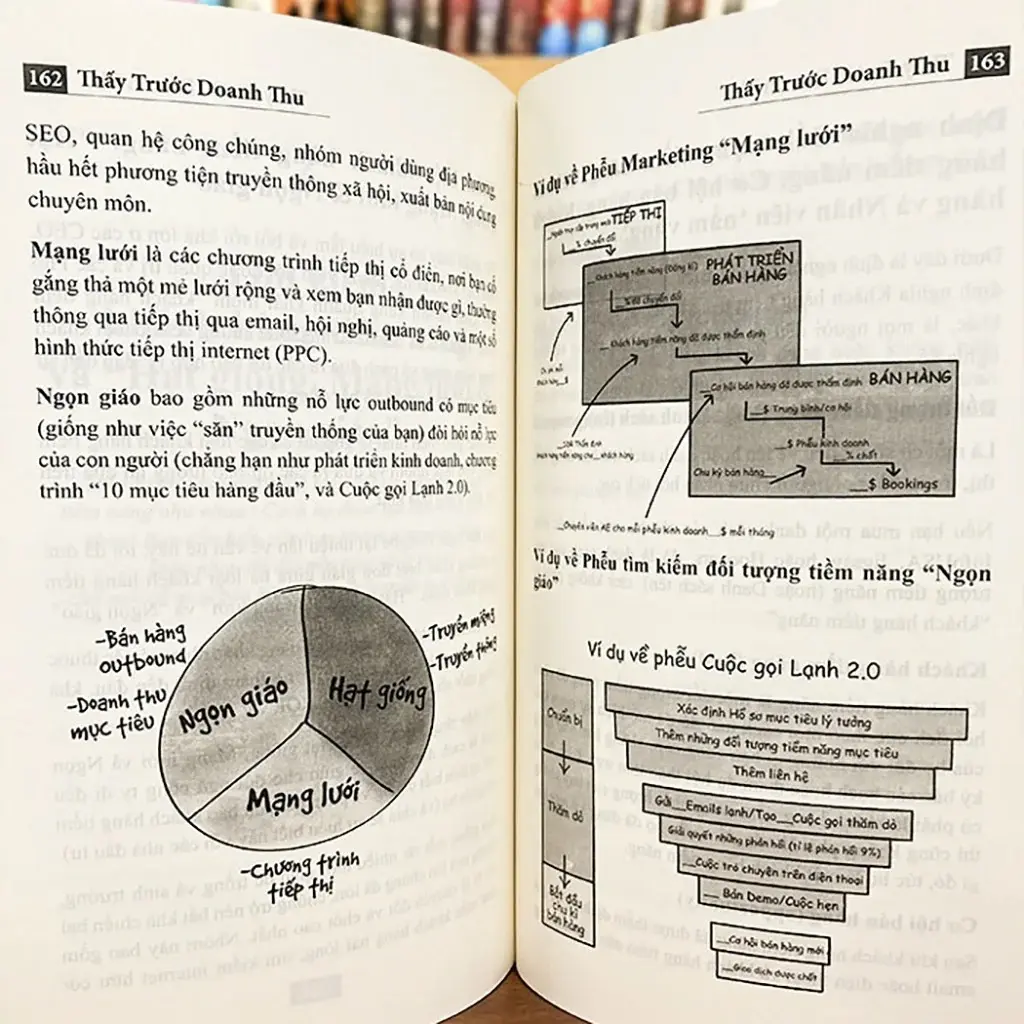 162 Thấy Trước Doanh Thu
SEO, quan hệ công chúng, nhóm người dùng địa phương,
hầu hết phương tiện truyền thông xã hội, xuất bản nội dung
chuyên môn.
Mạng lưới là các chương trình tiếp thị cổ điển, nơi bạn cố
gắng thả một mẻ lưới rộng và xem bạn nhận được gì, thường
thông qua tiếp thị qua email, hội nghị, quảng cáo và một số
hình thức tiếp thị internet (PPC).
Ngọn giáo bao gồm những nỗ lực outbound có mục tiêu
(giống như việc “săn” truyền thống của bạn) đòi hỏi nỗ lực
của con người (chẳng hạn như phát triển kinh doanh, chương
trình “10 mục tiêu hàng đầu”, và Cuộc gọi Lạnh 2.0).
-Bán hàng
outbound
-Doanh thu
mục tiêu
Ngọn giáo
Hạt giống
-Truyền miệng
-Truyền thông
Mạng lưới
-Chương trình
tiếp thị
Thấy Trước Doanh Thu 163
Ví dụ về Phễu Marketing “Mạng lưới”
TIẾP THỊ
__% chuyển đổi
__Khách hàng tiềm năng (Đăng kí)
PHÁT TRIỂN
BÁN HÀNG
__% chuyển đổi
__Khách hàng tiềm năng đã được thẩm định
__Cơ hội bán hàng đã được thẩm định
BÁN HÀNG
__$ Trung bình/cơ hội
__$ Phễu kinh doanh
__% chốt
Chu kỳ bán hàng__
__$ Bookings
__Chuyên viên AE cho mỗi phễu kinh doanh__$ mỗi tháng
Ví dụ về Phễu tìm kiếm đối tượng tiềm năng “Ngọn
giáo”
Ví dụ về phễu Cuộc gọi Lạnh 2.0
Chuẩn bị
Thăm dò
Bắt đầu
chu kì
bán hàng
Xác định Hồ sơ mục tiêu lý tưởng
Thêm những đối tượng tiềm năng mục tiêu
Thêm liên hệ
Gửi__Emails lạnh/Tạo__Cuộc gọi thăm dò
Giải quyết những phản hồi (tỉ lệ phản hồi 9%)
__Cuộc trò chuyện trên điện thoại
__Bản Demo/Cuộc hẹn
__Cơ hội bán hàng mới
__Giao dịch được chốt